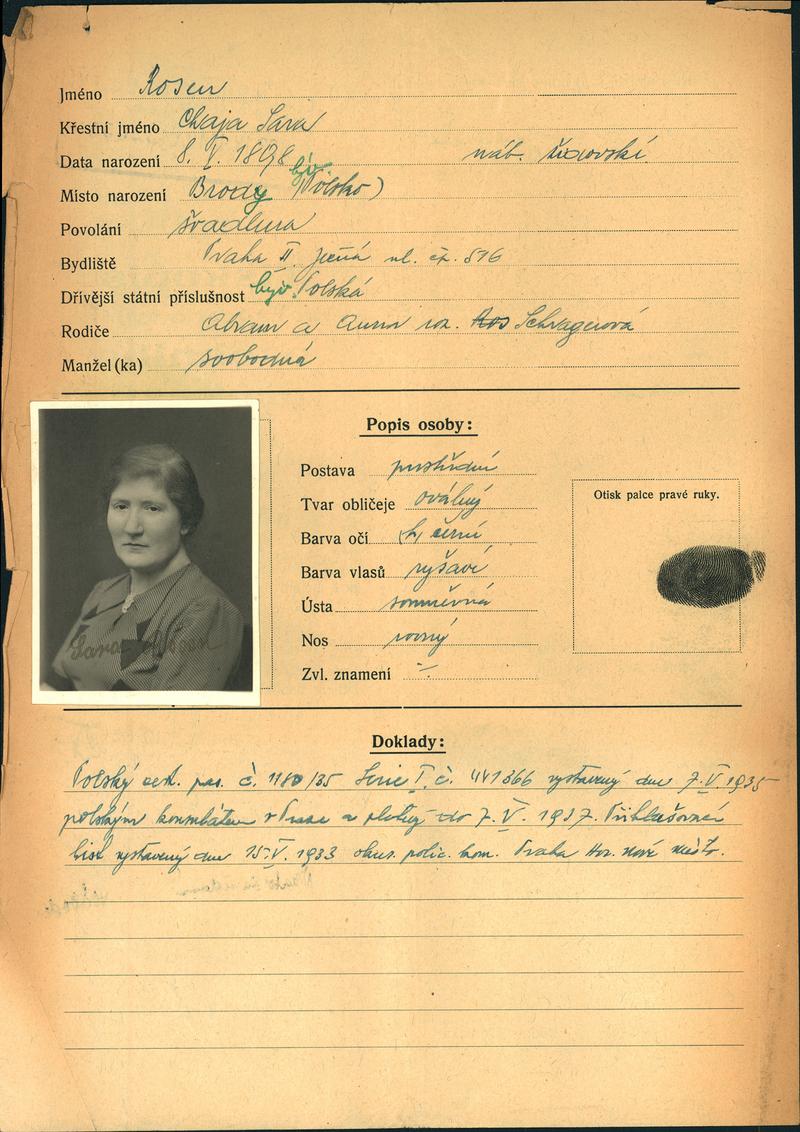 Jméno Rosen
Křestní jméno Chaja Sara
Data narození 8. V. 1898 náb. židovské
Místo narození Brody (býv. Polsko)
Povolání švadlena
Bydliště Praha II. Ječná ul. čp. 516
Dřívější státní příslušnost býv. Polská
Rodiče Abram a Anna roz. Schragerová
Manžel (ka) svobodná
Popis osoby:
Postava prostřední
Tvar obličeje oválný
Barva očí černé
Barva vlasů ryšavé
Ústa souměrná
Nos rovný
Zvl. znamení -
Otisk palce pravé ruky.
Sara Rosen
Doklady:
Polský cest. pas. č. 1180/35 Serie I. č. 441366 vystavený dne 7. V. 1935
polským konsulátem v Praze a platný do 7. V. 1937. Přihlašovací
list vystavený dne 15. V. 1933 okres. polic. kom. Praha Hor. nové město.